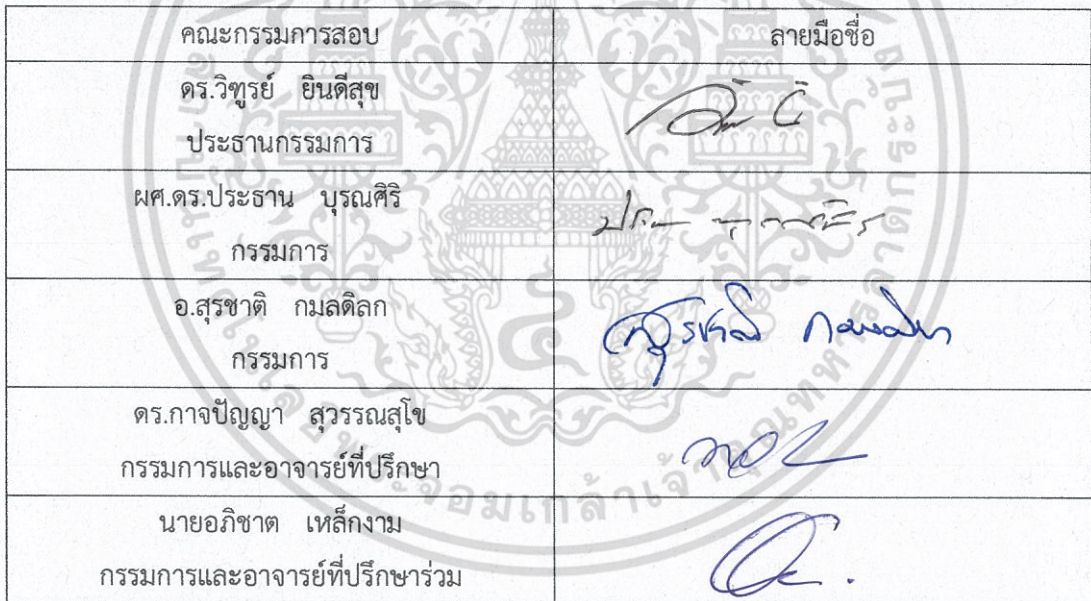 คณะกรรมการสอบ ลายมือชื่อ
ดร.วิฑูรย์ ยินดีสุข
ประธานกรรมการ
ผศ.ดร.ประธาน บุรณศิริ
กรรมการ
อ.สุรชาติ กมลดิลก
สุรชาติ กมลดิลก
กรรมการ
ดร.กาจปัญญา สุวรรณสุโข
กรรมการและอาจารย์ที่ปรึกษา
นายอภิชาต เหล็กงาม
กรรมการและอาจารย์ที่ปรึกษาร่วม